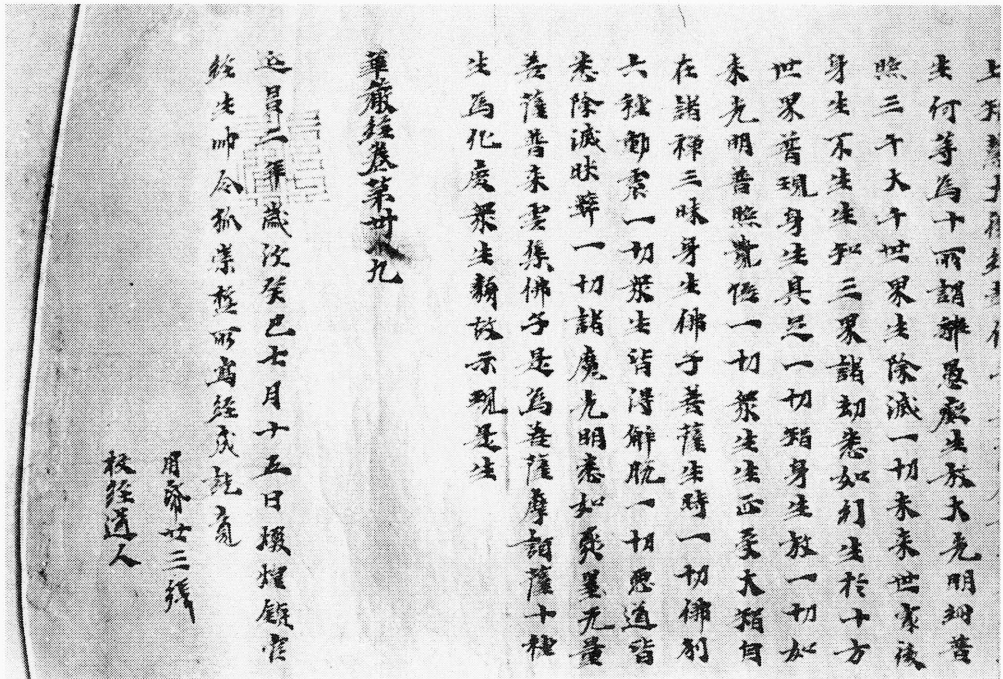 生何等為十所謂離愚癡生放大光明網普
照三千大千世界生除滅一切未来世家後
身生不生生知三界諸劫悉如幻生於十方
世界普現身生具足一切智身生放一切如
来光明普照覺悟一切衆生生正受大智自
在諸禅三昧身生佛子菩薩生時一切佛刹
六種動震一切衆生皆得解脫一切惡道皆
悉除滅暎蔽一切諸魔光明悉如聚墨无量
菩薩普来雲集佛子是為菩薩摩訶薩十種
生為化度衆生類故示現是生
華嚴經卷第卅九
延昌二年歲次癸巳七月十五日燉煌鎮官
經生帥令狐崇哲所寫經成訖竟
用帋廿三張
校經道人